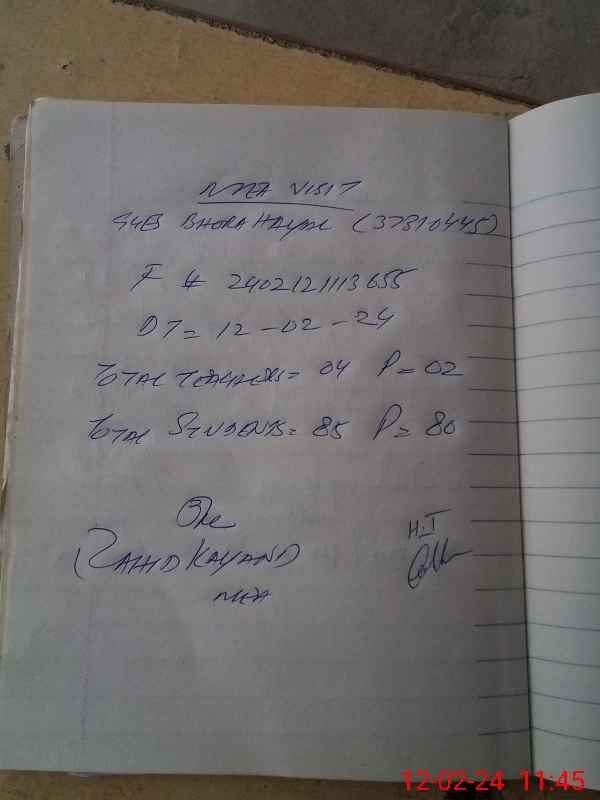 MEA VISIT
GHS BHORA HAYAL (37310445)
F # 2402121113655
DT = 12-02-24
TOTAL TEACHERS = 04 P = 02
TOTAL STUDENTS = 85 P = 80
KAYAND
MEA
H.T
12-02-24 11:45